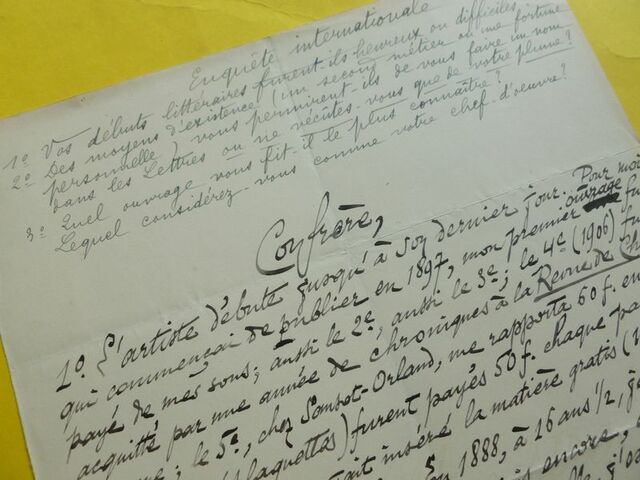 Enquête internationale
1º Vos débuts littéraires furent-ils heureux ou difficiles
2º Des moyens d'existence (un second métier ou une fortune
personnelle) vous permirent-ils de vous faire un nom
dans les Lettres ou ne vécutes-vous que de votre plume?
3º Quel ouvrage vous fit-il le plus connaître?
Lequel considérez-vous comme votre chef-d'oeuvre?
Confrère,
1º. L'artiste débute jusqu'à son dernier jour. Pour moi
qui commençai de publier en 1897, mon premier ouvrage fu
payé de mes sous; aussi le 2e, aussi le 3e; le 4e (1906) fu
acquitté par une année de chroniques à la Revue de Ch
le 5e, chez Sansot-Orland, me rapporta 60 f. en
plaquettes) furent payés 50 f. chaque pa
inséré la matière gratis
en 1888, à 16 ans 1/2,
encore,